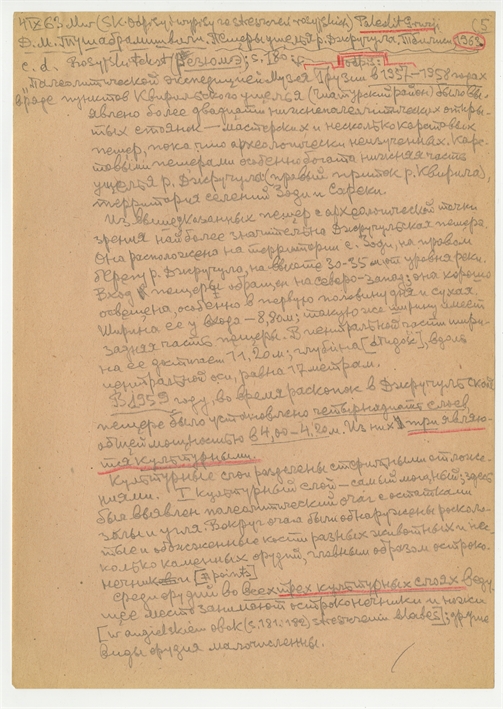 4 IX 63. Mw (SK. Odpisy i wypisy ze streszczeń rosyjskich) Paleolit Gruzji (5
Д. М. Тушабрамишвили. Пещеры ущелья р. Джручула, Тбилиси, 1963
c. d. Rosyjski tekst (Резюмэ); s. 180:
"Палеолитической экспедицией Музея Грузии в 1957-1958 годах
в ряде пунктов Квирильского ущелья (Чиатурский район) было вы-
явлено более двадцати нижнепалеолитических откры-
тых стоянок — мастерских и несколько карстовых
пещер, пока что археологически неизученных. Карс-
товыми пещерами особенно богата нижняя часть
ущелья р. Джручула (правый приток р. Квирила),
территория селений Зоди и Сареки.
Из вышеуказанных пещер с археологической точки
зрения наиболее значительна Джручульская пещера.
Она расположена на территории с. Зоди, на правом
берегу р. Джручула, на высоте 30-35 м от уровня реки.
Вход в пещеру обращен на северо-запад; она хорошо
освещена, особенно в первую половину дня и сухая.
Ширина ее у входа — 8,80м; такую же ширину имеет
задняя часть пещеры. В центральной части шири-
на ее достигает 11,20м; глубина, вдоль
центральной оси, равна 17 метрам.
В 1959 году, во время раскопок в Джручульской
пещере было установлено четырнадцать слоев
общей мощностью в 4,00-4,20м. Из них три являю-
тся культурными.
Культурные слои разделены стерильными отложе-
ниями. I культурный слой — самый мощный; здесь
был выявлен палеолитический очаг с остатками
золы и угля. Вокруг очага были обнаружены расколо-
тые и обожженные кости разных животных и нес-
колько каменных орудий, главным образом остроко-
нечники [points]
Среди орудий во всех трех культурных слоях веду-
щее место занимают остроконечники и ножи
[w angielskim obok (s. 181-182) streszczeniu blades]; другие
виды орудия малочисленны.